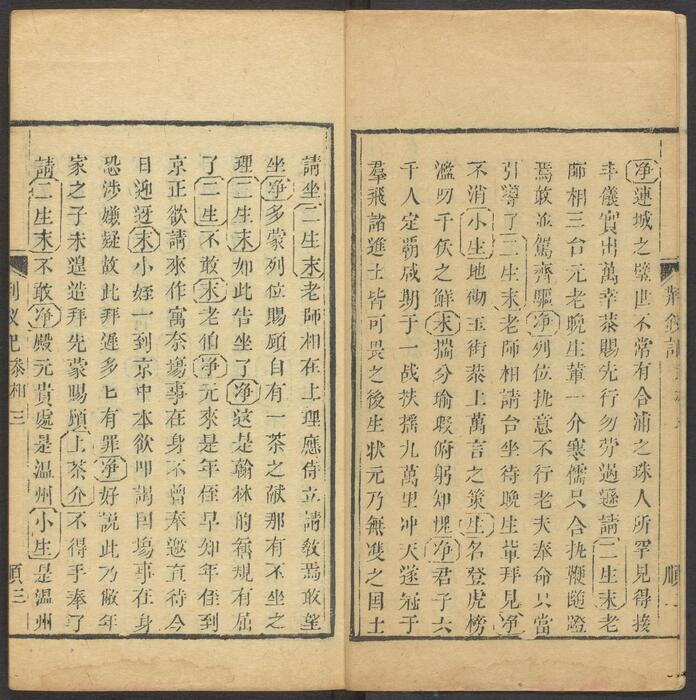 淨連城之璧世不常有合浦之珠人所罕見得接
丰儀實出萬幸恭賜先行勿勞過遜請二生末老
師相三台元老晚生輩一介寒儒只合執鞭隨蹬
焉敢並駕齊驅淨列位執意不行老夫奉命只當
引導了二生末老師相請台坐待晚生輩拜見淨
不消小生地砌玉街恭上萬言之策生名登虎榜
濫叨千佚之鮮末揣分瑜瑕俯躬知愧淨君子六
千人定覇咸期于一战扶摇九萬里冲天遂冠于
羣飛諸進士皆可畏之後生狀元乃無雙之国士
荆釵記
順
請坐二生末老師相在上理應侍立請敎焉敢望
坐淨多蒙列位賜顧自有一茶之献那有不坐之
理二生末如此告坐了淨这是翰林的舊規有屈
了二生不敢末老伯淨元來是年侄早知年侄到
京正欲請來作寓奈塲事在身不曾奉邀直待今
日迎迓末小姪一到京中本欲叩謁因塲事在身
恐涉嫌疑故此拜遲多匕有罪淨好説此乃敝年
家之子未遑造拜先蒙賜顧上茶介不得手奉了
請二生末不敢淨殿元貴處是温州小生是温州
参相 三
順三